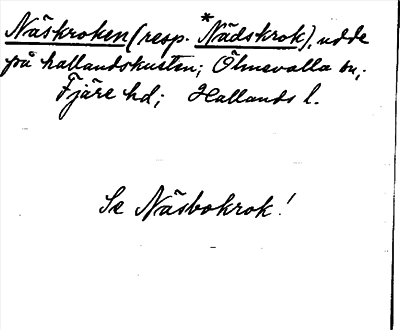 Näskroken (resp. *Nädskrok), udde
på hallandskusten; Ölmevalla sn,
Fjäre hd; Hallands l.
Se Näsbokrok!